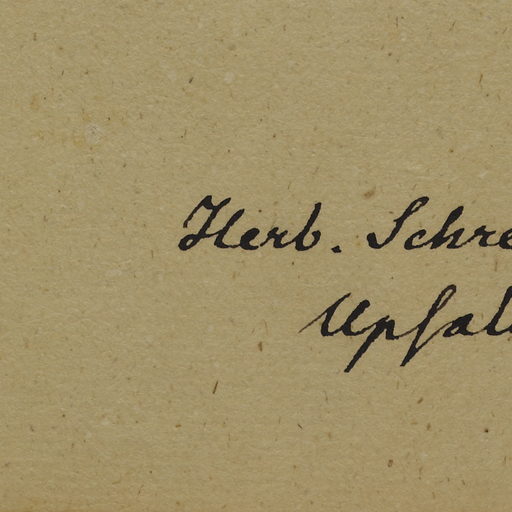 Herb. Schre
Upſal